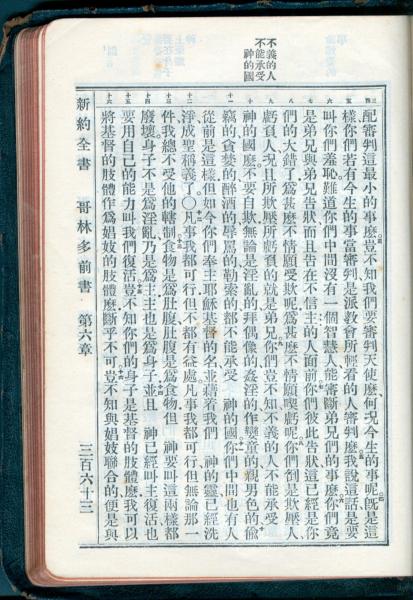 不義的人
不能承受
神的國
配審判這最小的事麽豈不知我們要審判天使麽何况今生的事呢旣是這
樣你們若有今生的事當審判是派教會所輕看的人審判麽我說這話是要
叫你們羞恥難道你們中間沒有一個智慧人能審斷弟兄們的事麽你們竟
是弟兄與弟兄告狀而且告在不信主的人面前你們彼此告狀這已經是你
們的大錯了爲甚麽不情願受欺呢爲甚麽不情願喫虧呢你們倒是欺壓人
虧負人况且所欺壓所虧負的就是弟兄你們豈不知不義的人不能承受
神的國麽不要自欺無論是淫亂的拜偶像的姦淫的作孌童的親男色的偷
竊的貪婪的醉酒的辱罵的勒索的都不能承受 神的國你們中間也有人
從前是這樣但如今你們奉主耶穌基督的名並藉着我們 神的靈已經洗
淨成聖稱義了〇凡事我都可行但不都有益處凡事我都可行但無論那一
件我總不受他的轄制食物是爲肚腹肚腹是爲食物但 神要叫這兩樣都
廢壞身子不是爲淫亂乃是爲主主也是爲身子並且 神已經叫主復活也
要用自己的能力叫我們復活豈不知你們的身子是基督的肢體麽我可以
將基督的肢體作爲娼妓的肢體麽斷乎不可豈不知與娼妓聯合的便是與
新約全書 哥林多前書 第六章 三百六十三